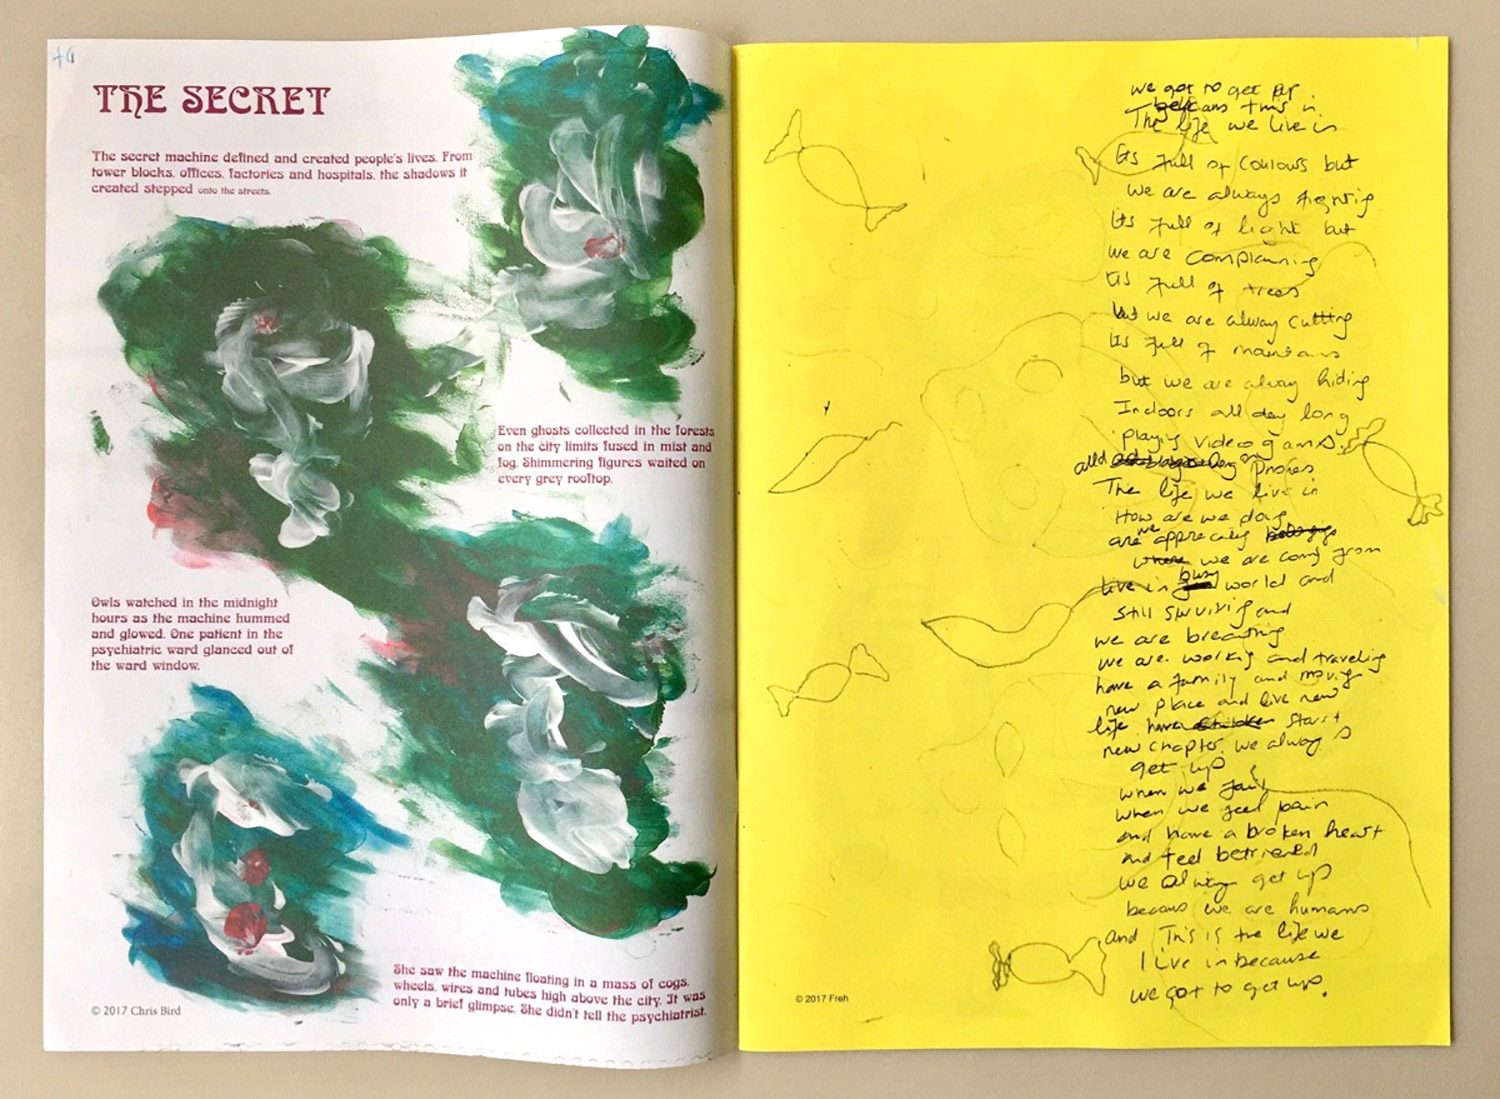 THE SECRET
The secret machine defined and created people's lives. From
tower blocks, offices, factories and hospitals, the shadows it
created stepped onto the streets.
Even ghosts collected in the forests
on the city limits fused in mist and
fog. Shimmering figures waited on
every grey rooftop.
Owls watched in the midnight
hours as the machine hummed
and glowed. One patient in the
psychiatric ward glanced out of
the ward window.
She saw the machine floating in a mass of cogs,
wheels, wires and tubes high above the city. It was
only a brief glimpse. She didn't tell the psychiatrist.
© 2017 Chris Bird
we got to get up
becaus this is
The life we live in
its full of coulours but
we are always fighting
its full of light but
we are complanning
its full of trees
but we are alway cutting
its full of mountans
but we are alway hiding
Indoors all day long
playing video games
on Phones
The life we live in
How are we doing
are we appreciating
we are coming from
live in busy world and
still surviving and
we are breathing
we are working and traveling
have a family and moving
new place and live new
life have start
new chapter. we always
get up
when we fail
when we feel pain
and have a broken heart
and feel
we always get up
becaus we are humans
and This is the life we
live in because
we got to get up.
© 2017 Freh